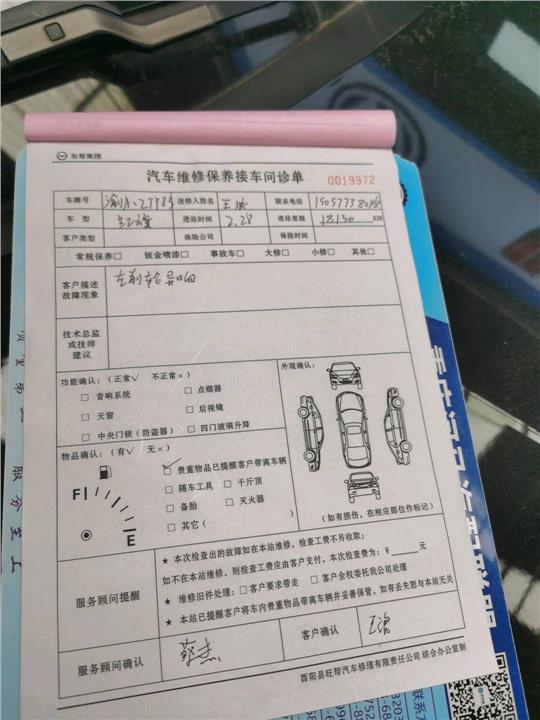 友帮集团
汽车维修保养接车问诊单
0019972
车牌号 送修人姓名 联系电话
车型 进站时间 2.28 进站里程 18130 KM
客户类型 保险公司 保险时间
常规保养□ 钣金喷漆□ 事故车□ 大修□ 小修□ 其他□
客户描述 左前轮异响
故障现象
技术总监
或技师
建议
功能确认：（正常√ 不正常×） 外观确认：
□ 音响系统 □ 点烟器
□ 天窗 □ 后视镜
□ 中央门锁（防盗器） □ 四门玻璃升降
物品确认：（有√ 无×）
□ 贵重物品已提醒客户带离车辆
F □ 随车工具 □ 千斤顶
□ 备胎 □ 灭火器
E □ 其它（ （如有损伤，在相应部位作标记）
服务顾问提醒
★ 本次检查出的故障如在本站维修，检查工费不另收取；
如不在本站维修，则检查工费应由客户支付，本次检查费为：¥ 元
★ 维修旧件处理：□ 客户要求带走 □ 客户全权委托我公司处理
★ 本站已提醒客户将车内贵重物品带离车辆并妥善保管，如有丢失恕与本站无关
服务顾问确认 客户确认
酉阳县旺帮汽车修理有限责任公司 综合办公室制
服务至上